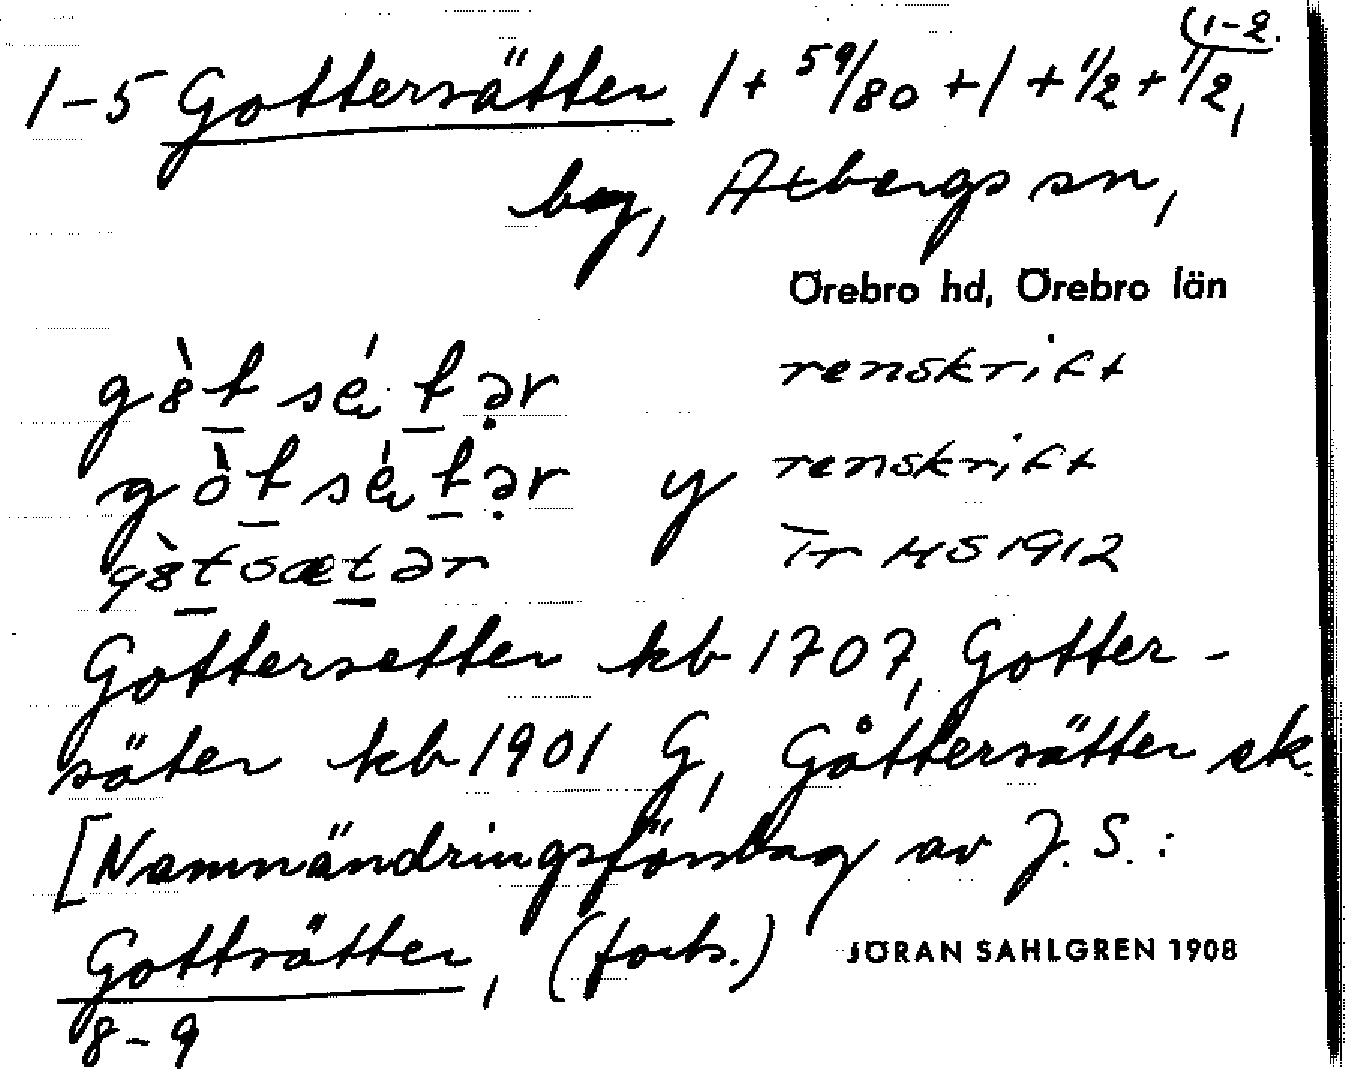 (1-2.
1-5 Gottersätter 1 + 59/80 + 1 + 1/2 + 1/2,
by, Axbergs sn,
Örebro hd, Örebro län
renskrift
y renskrift
Tr HS 1912
Gottersetter kb 1707, Gotter-
säter kb 1901 G, Gåttersätter ek.
[Namnändringsförslag av J. S.:
Gottsätter, (forts.)
JÖRAN SAHLGREN 1908
8-9